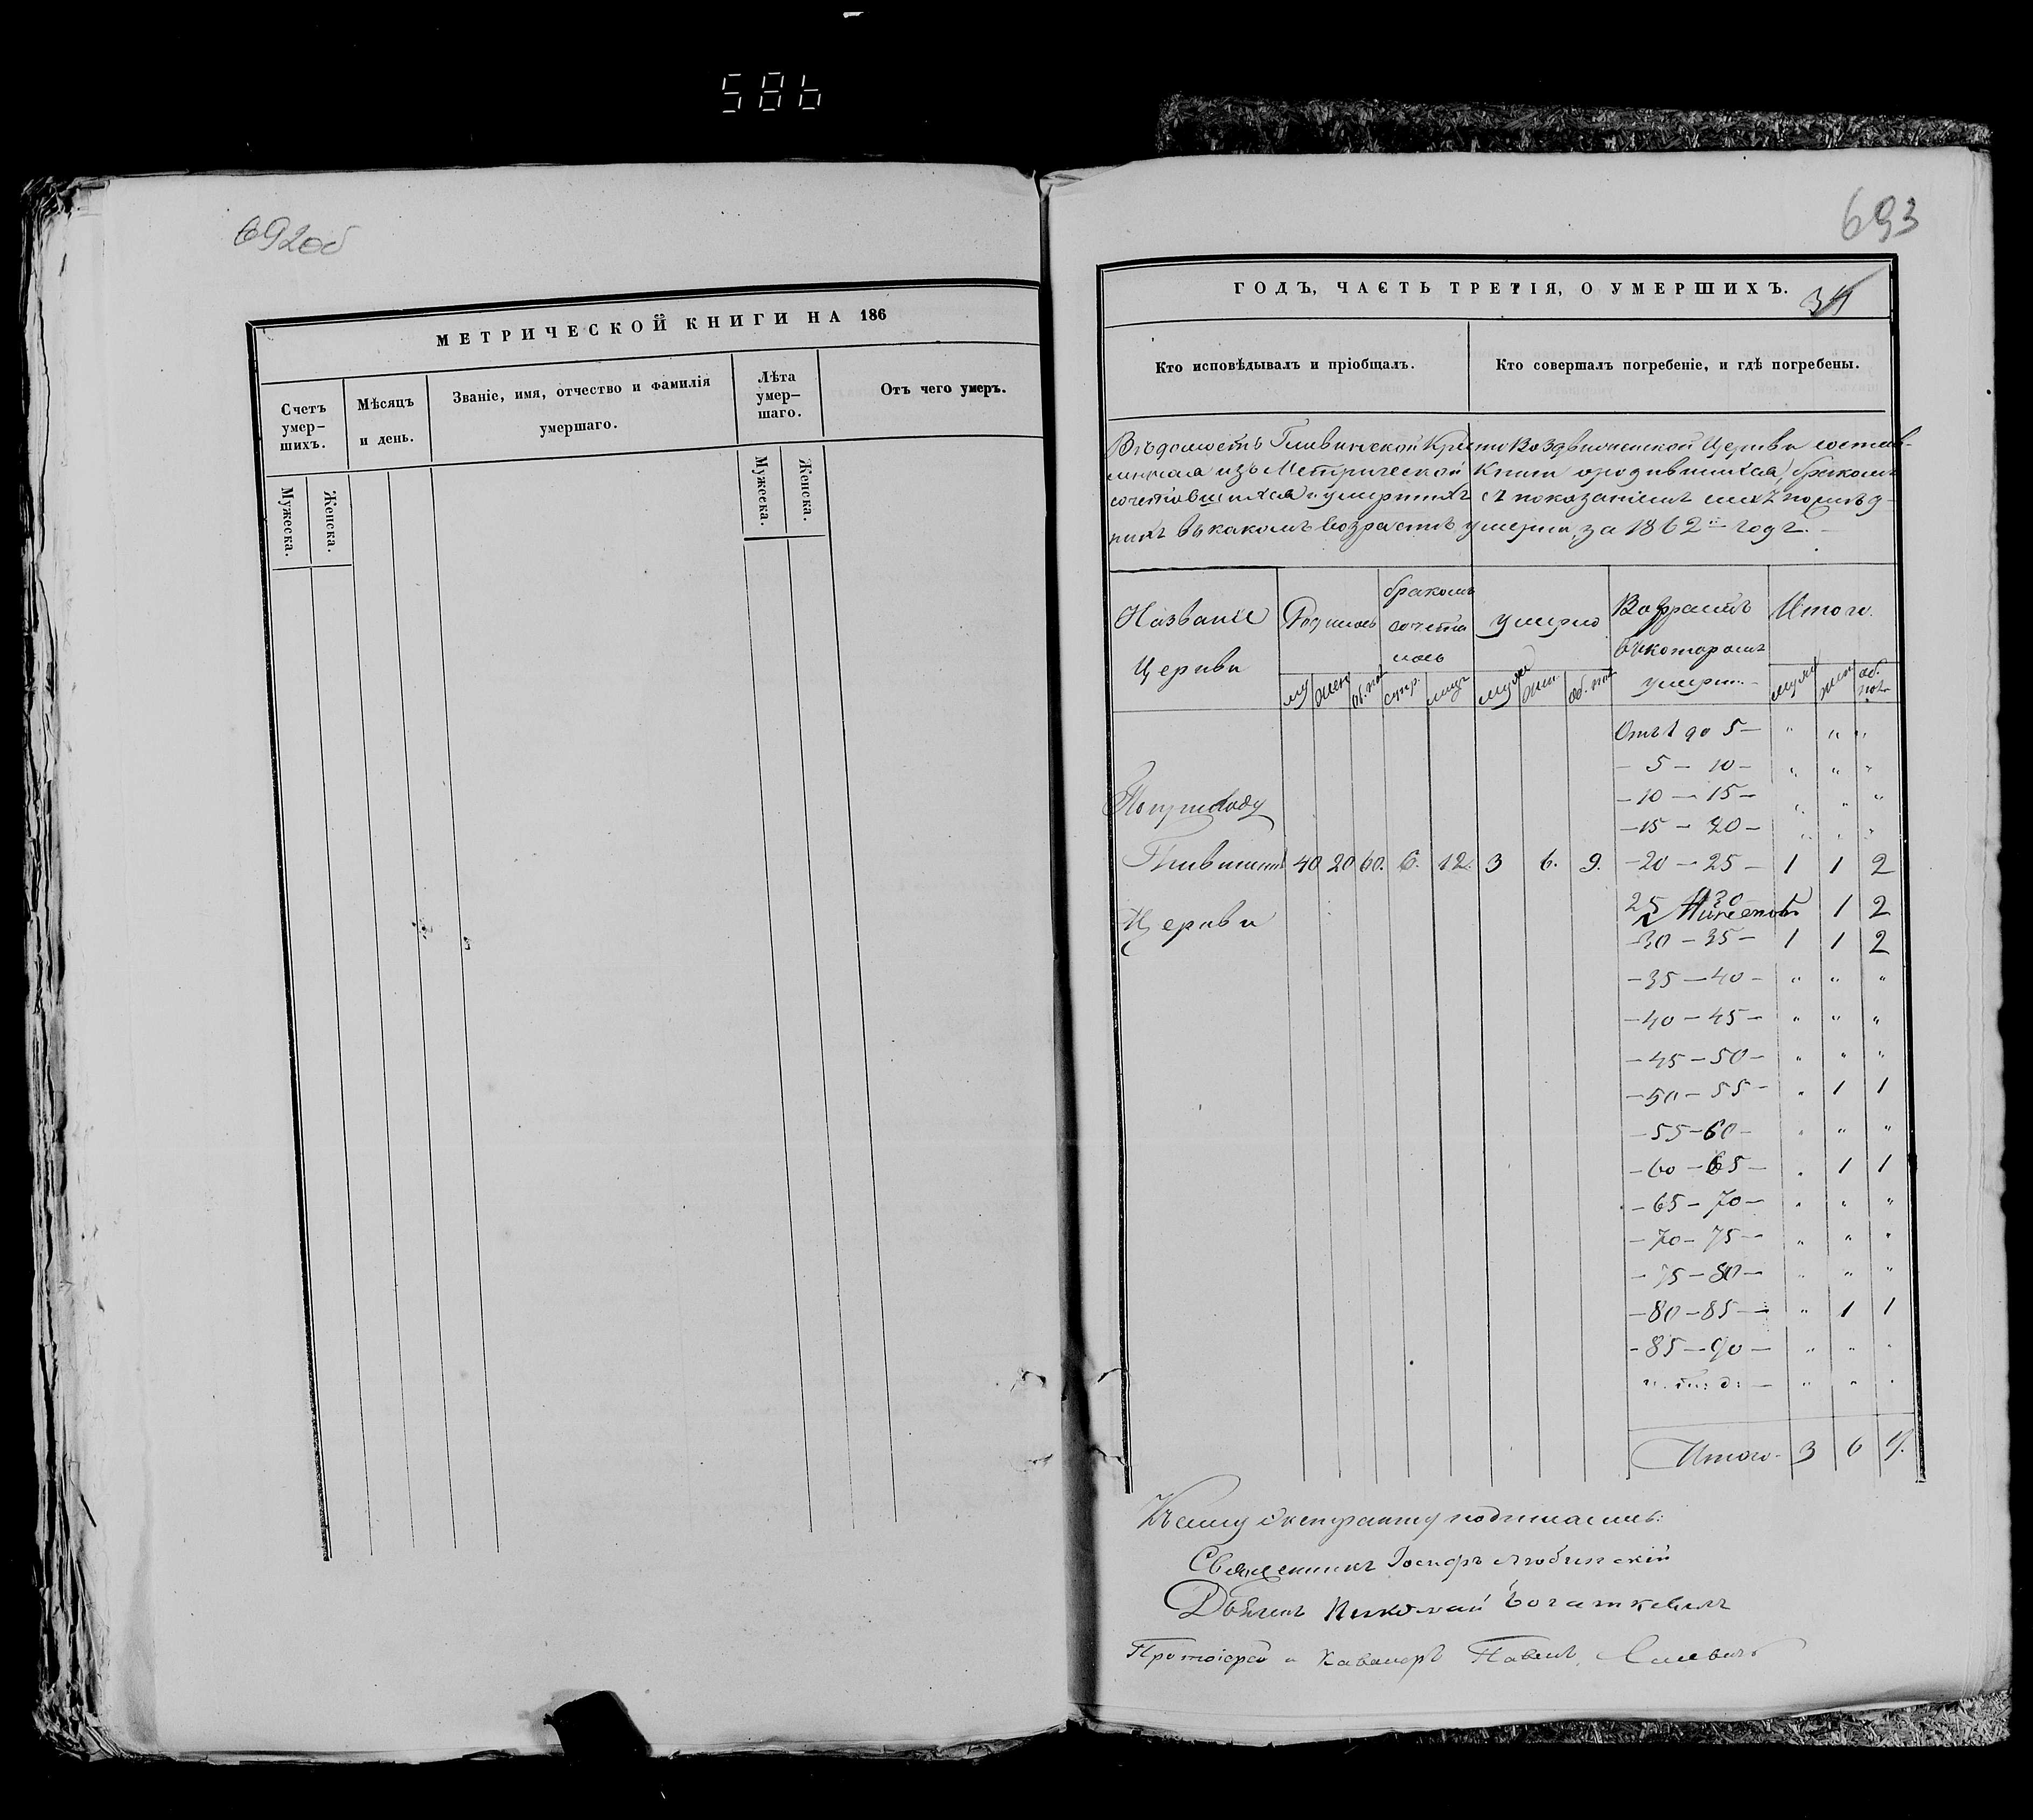 586
692об
МЕТРИЧЕСКОЙ КНИГИ НА 186
Счетъ умер–шихъ.
Мѣсяцъ и день.
Званіе, имя, отчество и фамилія умершаго.
Лѣта умер–шаго.
Отъ чего умеръ.
Мужеска.
Женска.
Мужеска.
Женска.
693
ГОДЪ, ЧАСТЬ ТРЕТІЯ, О УМЕРШИХЪ.
34
Кто исповѣдывалъ и пріобщалъ.
Кто совершалъ погребеніе, и гдѣ погребены.
Вѣдомость Кресто Воздвиженской Церкви состав-
ленная изъ Метрической Книги о родившихся, бракомъ
сочетавшихся и умершихъ съ показаніемъ изъ послѣд-
нихъ въ какомъ возрастѣ умерли, за 1862й годъ. –
Названіе Церкви
Родилось
бракомъ сочета лось
Умерло
Возрастъ въ которомъ умерли
Итого.
муж жен об. пол супр. лицъ муж жен. об. пол муж жен об. пол
Отъ 1 до 5 – " " "
– 5 – 10 – " " "
По приходу
– 10 – 15 – " " "
– 15 – 20 – " " "
40 20 60. 6. 12. 3 6. 9. – 20 – 25 – 1 1 2
Церкви
25 30 1 1 2
– 30 – 35 – 1 1 2
– 35 – 40 – " " "
– 40 – 45 – " " "
– 45 – 50 – " " "
– 50 – 55 – " 1 1
– 55 – 60 – " " "
– 60 – 65 – " 1 1
– 65 – 70 – " " "
– 70 – 75 – " " "
– 75 – 80 – " " "
– 80 – 85 – " 1 1
– 85 – 90 – " " "
и. т: д: – " " "
Итого – 3 6 9.
Къ сему экстракту подписались:
Священникъ Іосифъ Любинскій
Дьячекъ Николай Богаткевичъ
Протоіерей и Кавалеръ Павелъ